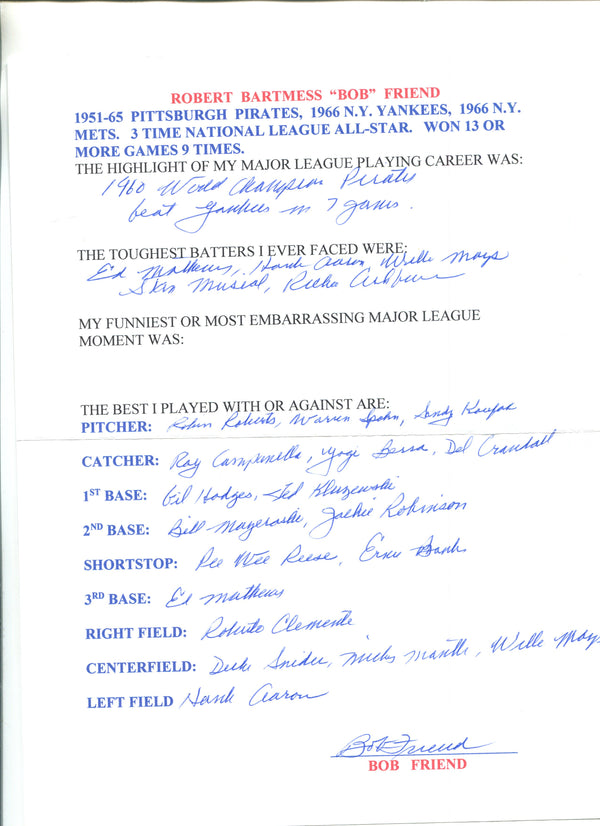 ROBERT BARTMESS "BOB" FRIEND
1951-65 PITTSBURGH PIRATES, 1966 N.Y. YANKEES, 1966 N.Y.
METS. 3 TIME NATIONAL LEAGUE ALL-STAR. WON 13 OR
MORE GAMES 9 TIMES.
THE HIGHLIGHT OF MY MAJOR LEAGUE PLAYING CAREER WAS:
1960 World Champion Pirates
beat Yankees in 7 games.
THE TOUGHEST BATTERS I EVER FACED WERE:
Ed Mathews, Hank Aaron, Willie Mays
Stan Musial, Richie Ashburn
MY FUNNIEST OR MOST EMBARRASSING MAJOR LEAGUE
MOMENT WAS:
THE BEST I PLAYED WITH OR AGAINST ARE:
PITCHER: Robin Roberts, Warren Spahn, Sandy Koufax
CATCHER: Roy Campanella, Yogi Berra, Del Crandall
1ST BASE: Gil Hodges, Ted Kluzewski
2ND BASE: Bill Mazeroski, Jackie Robinson
SHORTSTOP: Pee Wee Reese, Ernie Banks
3RD BASE: Ed Mathews
RIGHT FIELD: Roberto Clemente
CENTERFIELD: Duke Snider, Mickey Mantle, Willie Mays
LEFT FIELD Hank Aaron
Bob Friend
BOB FRIEND